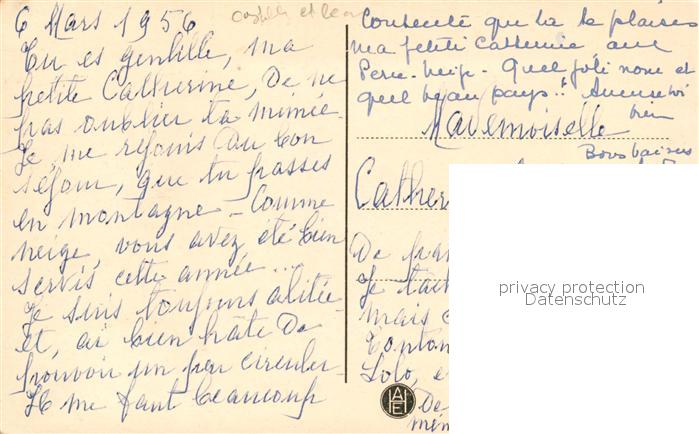 6 Mars 1956
Tu es gentille, ma
petite Catherine, De ne
pas oublier ta mimie.
Je, me rejouis Du bon
séjour, que tu passes
en montagne - Comme
neige, vous avez été bien
servis cette année...
Je suis toujours alitée
et, ai bien hâte De
pouvoir un peu circuler
Il me faut beaucoup
Contente que tu te plaises
ma petite Catherine, aux
Perce-Neige. Quel joli nom et
quel beau pays!! Amuse toi
bien
Mademoiselle
Bons baisers
Cather
De
Je
mais
Tonton
Lolo, e
De
privacy protection
Datenschutz